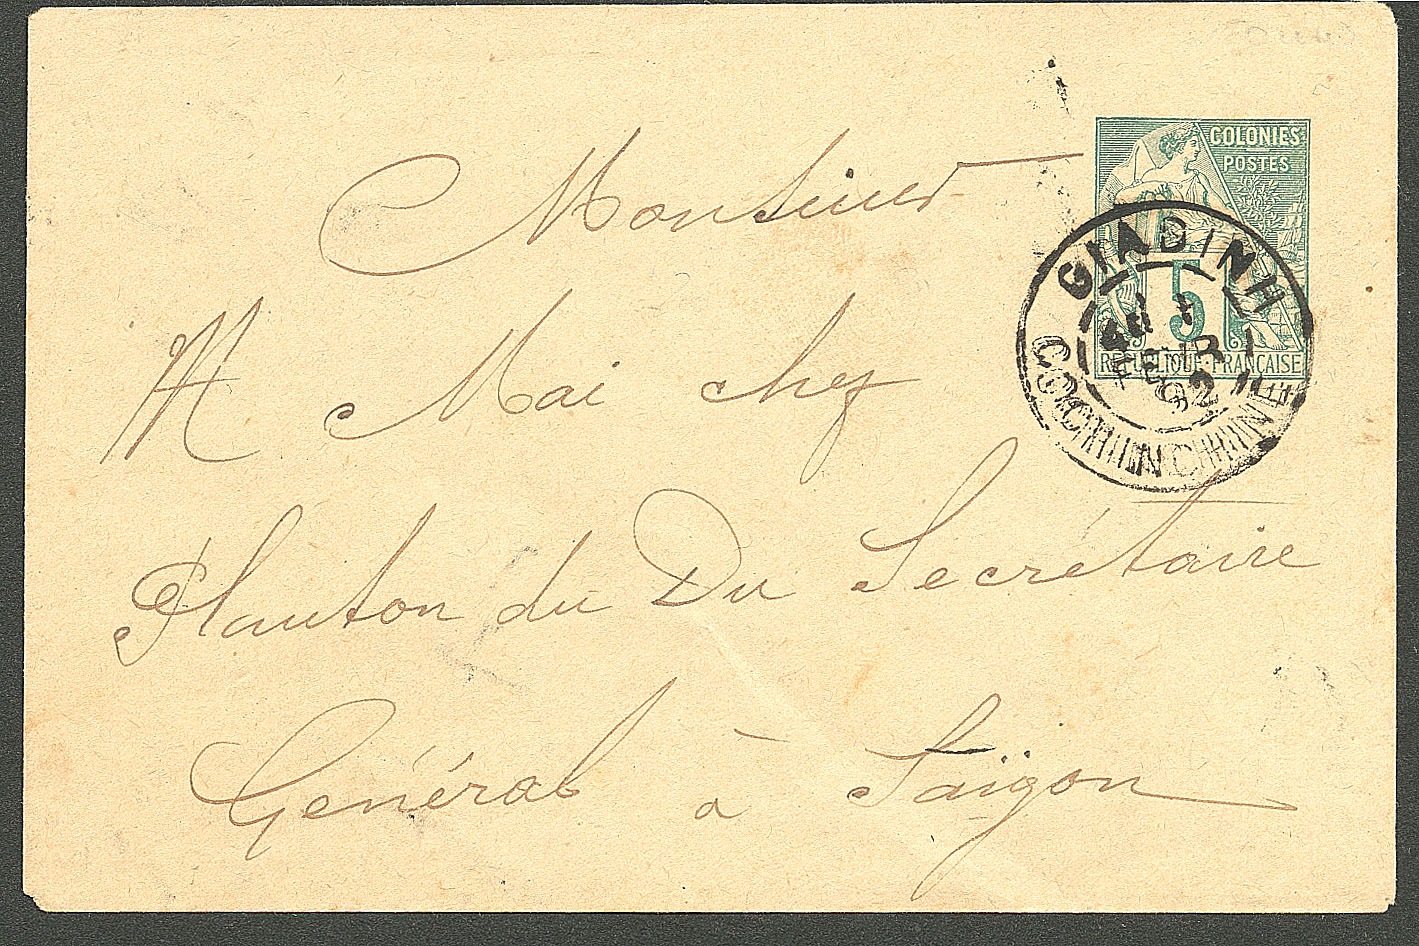 COLONIES
POSTES
5
REPUBLIQUE FRANÇAISE
GIADINH
FEVR
92
COCHINCHINE
Monsieur
Mai chez
Planton du Du Secrétaire
Général à Saïgon